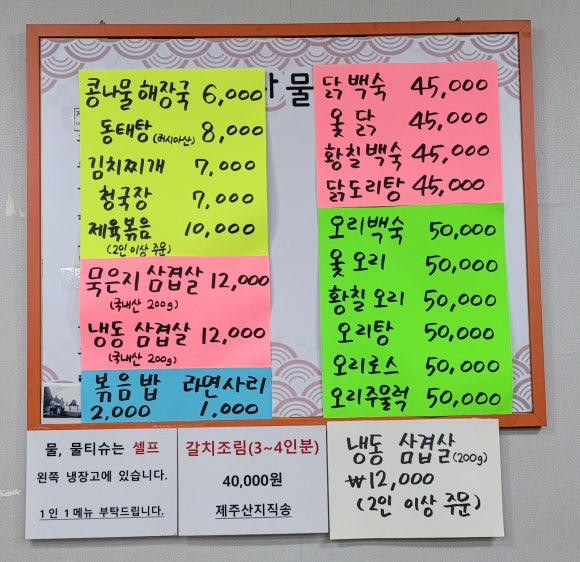 물
콩나물 해장국 6,000
동태탕 (러시아산) 8,000
김치찌개 7,000
청국장 7,000
제육볶음 10,000
(2인 이상 주문)
묵은지 삼겹살 12,000
(국내산 200g)
냉동 삼겹살 12,000
(국내산 200g)
볶음밥 라면사리
2,000 1,000
닭백숙 45,000
옻닭 45,000
황칠백숙 45,000
닭도리탕 45,000
오리백숙 50,000
옻오리 50,000
황칠오리 50,000
오리탕 50,000
오리로스 50,000
오리주물럭 50,000
물, 물티슈는 셀프
왼쪽 냉장고에 있습니다.
1인 1메뉴 부탁드립니다.
갈치조림(3~4인분)
40,000원
제주산지직송
냉동 삼겹살(200g)
₩12,000
(2인 이상 주문)